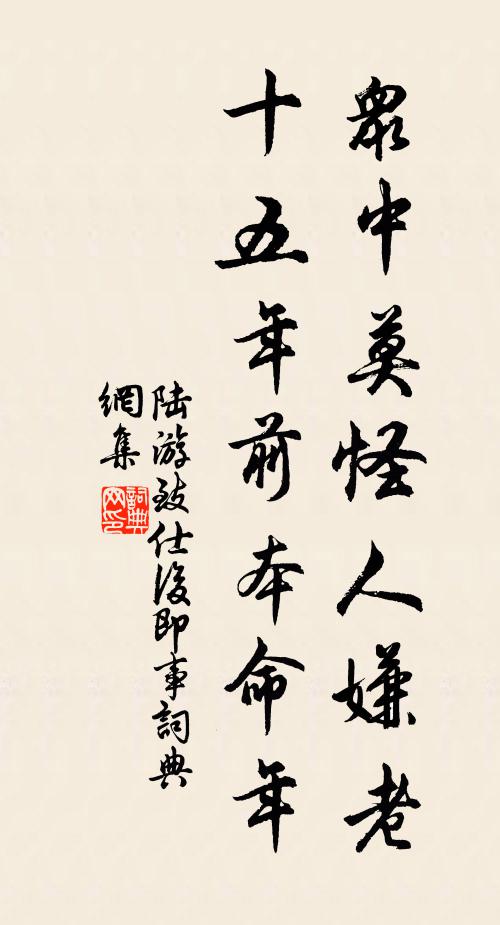 眾中莫怪人嫌老
十五年前本命年
陸游致仕後即事詞典
網集
詞典
网印